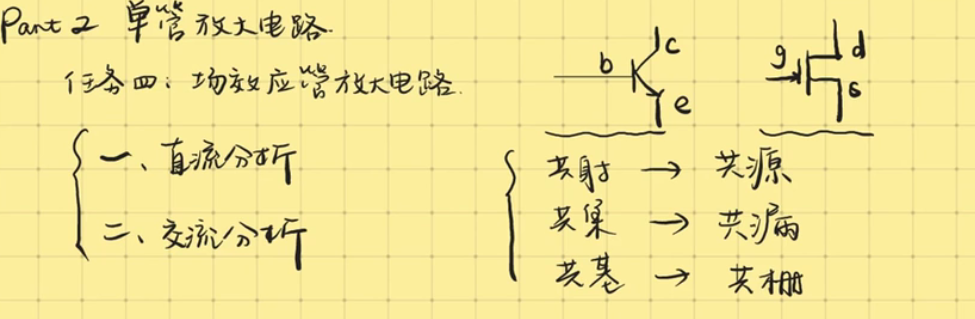 Part 2 单管放大电路.
任务四: 场效应管放大电路.
一、直流分析
二、交流分析
b c e
g d s
共射 → 共源
共集 → 共漏
共基 → 共栅